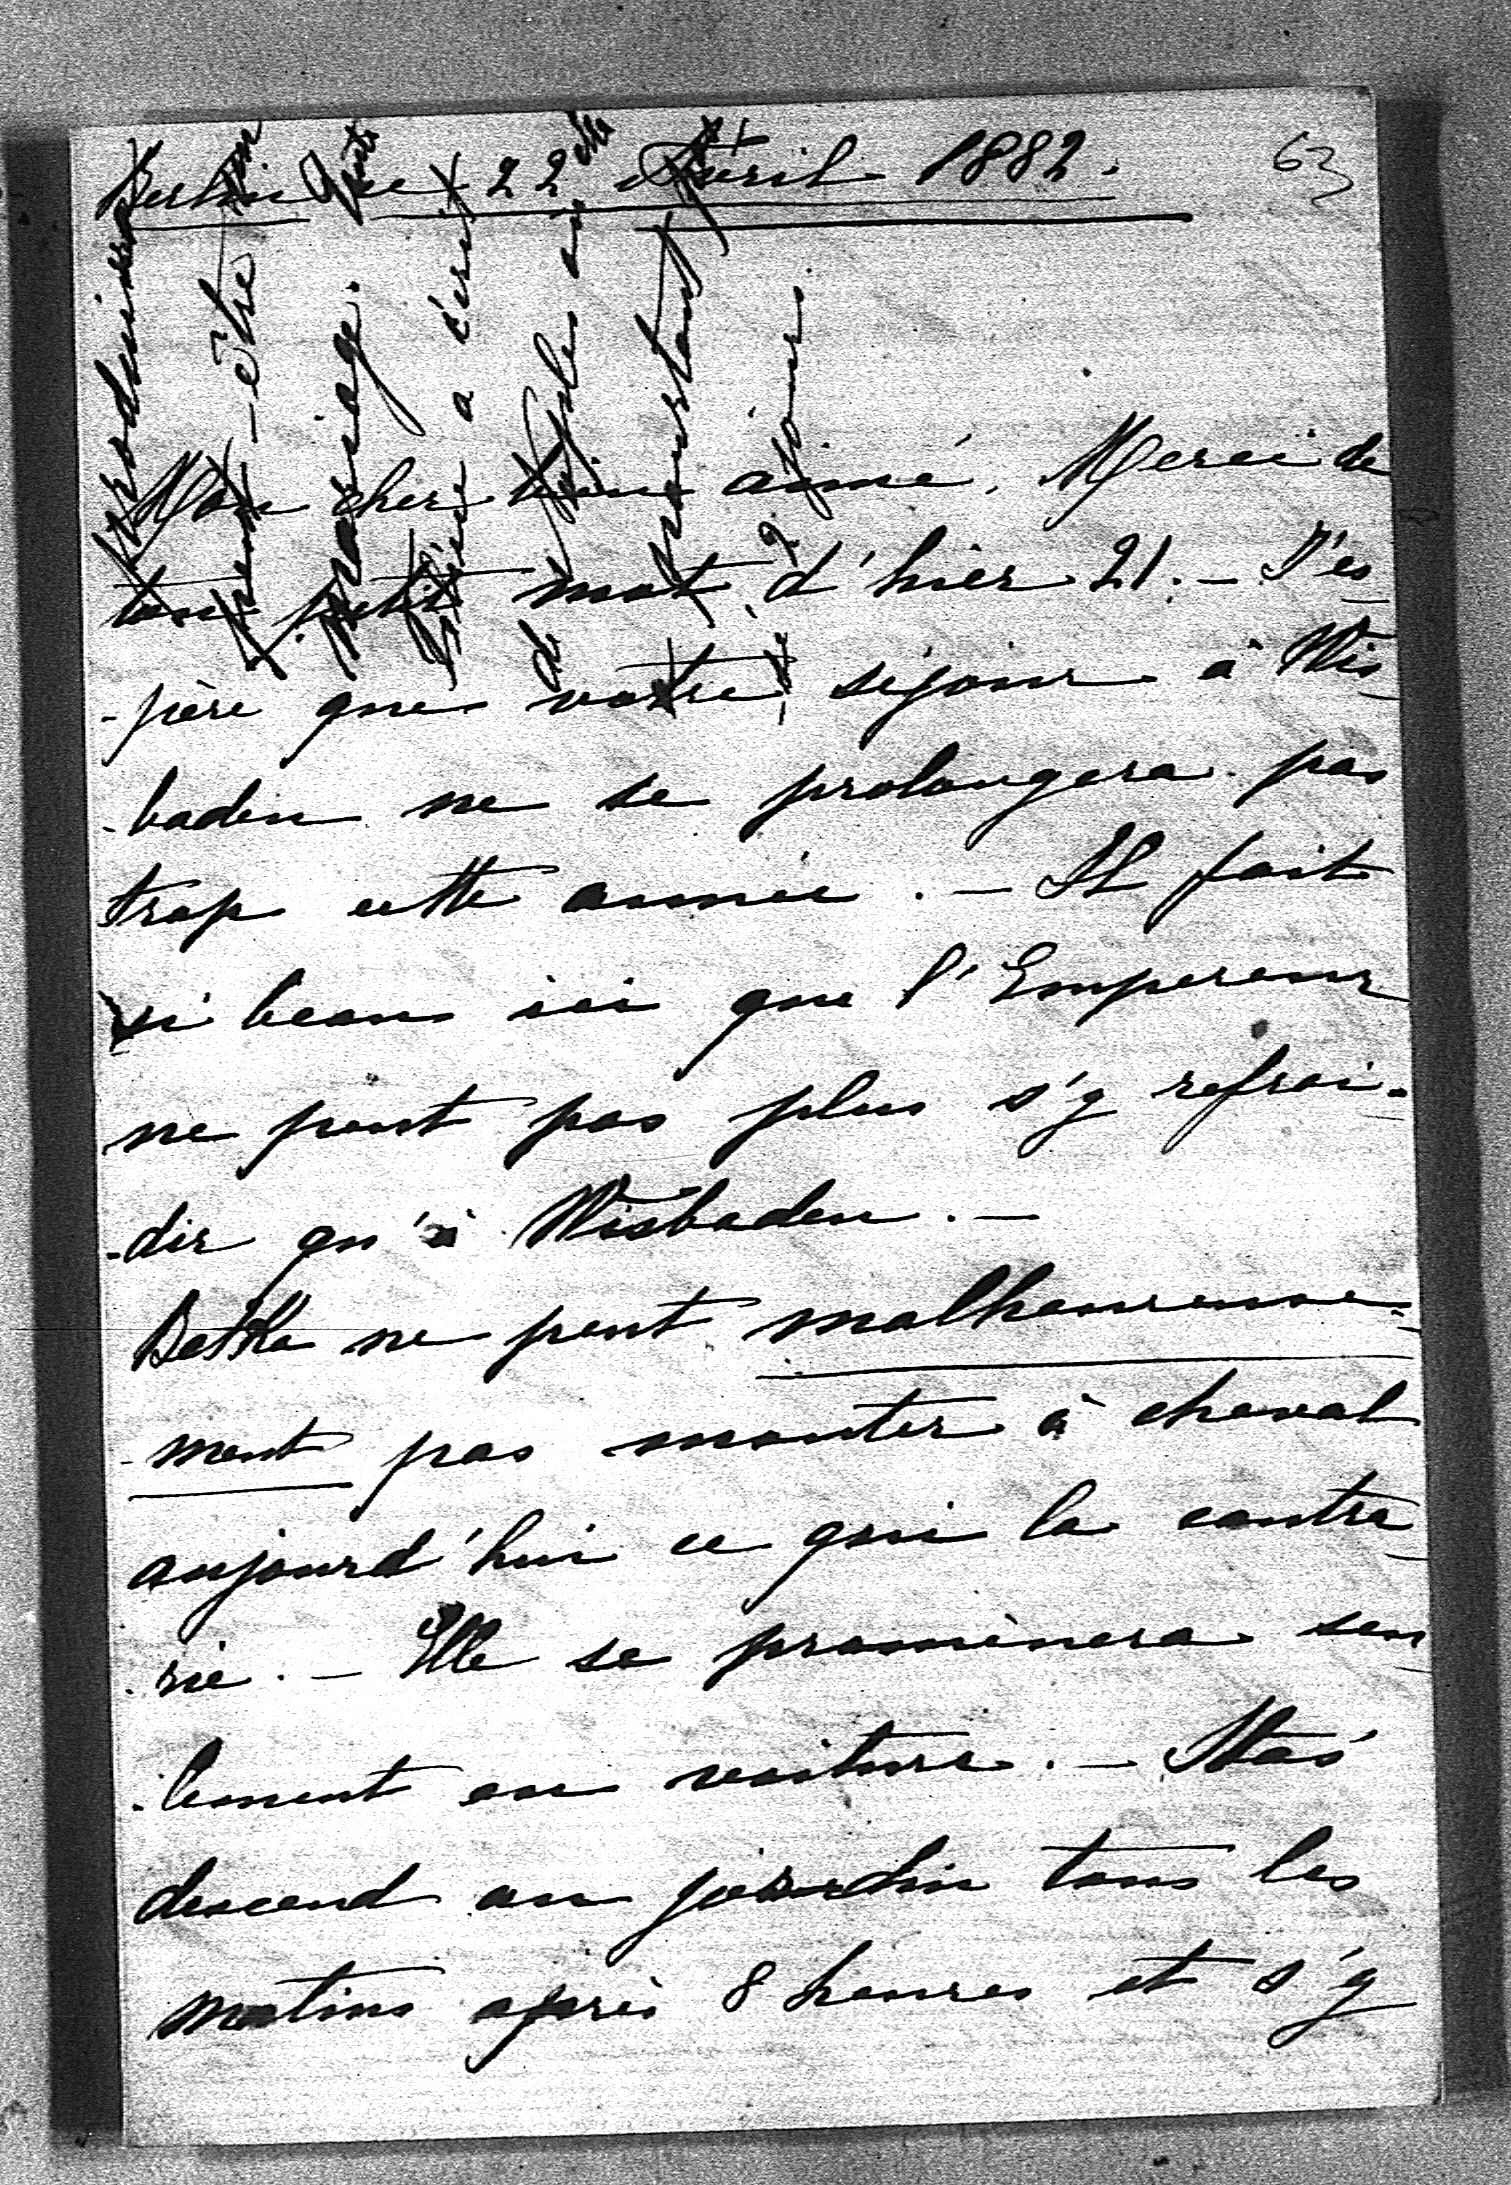 63
Berlin ce 22 Avril 1882.
Mon cher bien aimé. Merci de
ton petit mot d'hier 21. – J'es
-père que votre séjour à Wis
-baden ne se prolongera pas
trop cette année. – Il fait
si beau ici que l'Empereur
ne peut pas plus s'y refroi-
-dir qu'à Wisbaden. –
Betka ne peut malheureuse-
-ment pas monter à cheval
aujourd'hui ce qui la contra
-rie. – Elle se promènera seu
-lement en voiture. – Staś
descend au jardin tous les
matins après 8 heures et s'y
produira
peut-être
mariage.
a écrit
pourtant
jour.